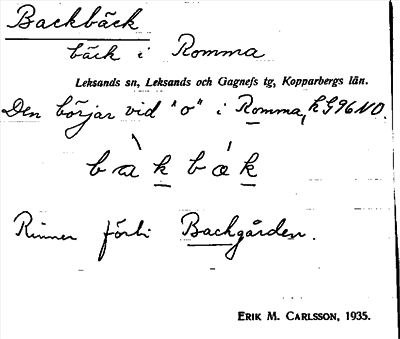 Backbäck
bäck i Romma
Leksands sn, Leksands och Gagnefs tg, Kopparbergs län.
Den börjar vid "o" i Romma, kG96NO.
bàk bák
Rinner förbi Backgården.
ERIK M. CARLSSON, 1935.